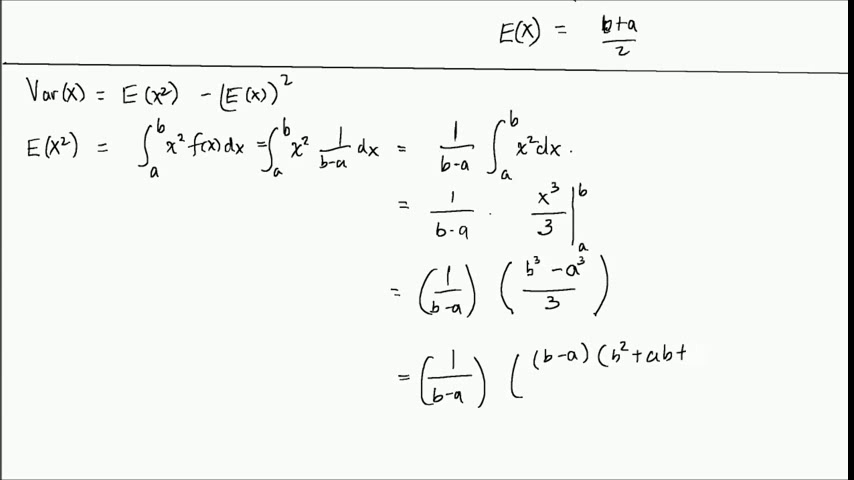 E(X) = b+a/2
Var(X) = E(X²) - (E(X))²
E(X²) = ∫_a^b x² f(x)dx = ∫_a^b x² 1/(b-a) dx = 1/(b-a) ∫_a^b x² dx.
= 1/(b-a) · x³/3 |_a^b
= (1/(b-a)) ((b³ - a³)/3)
= (1/(b-a)) ( (b-a) (b² + ab +